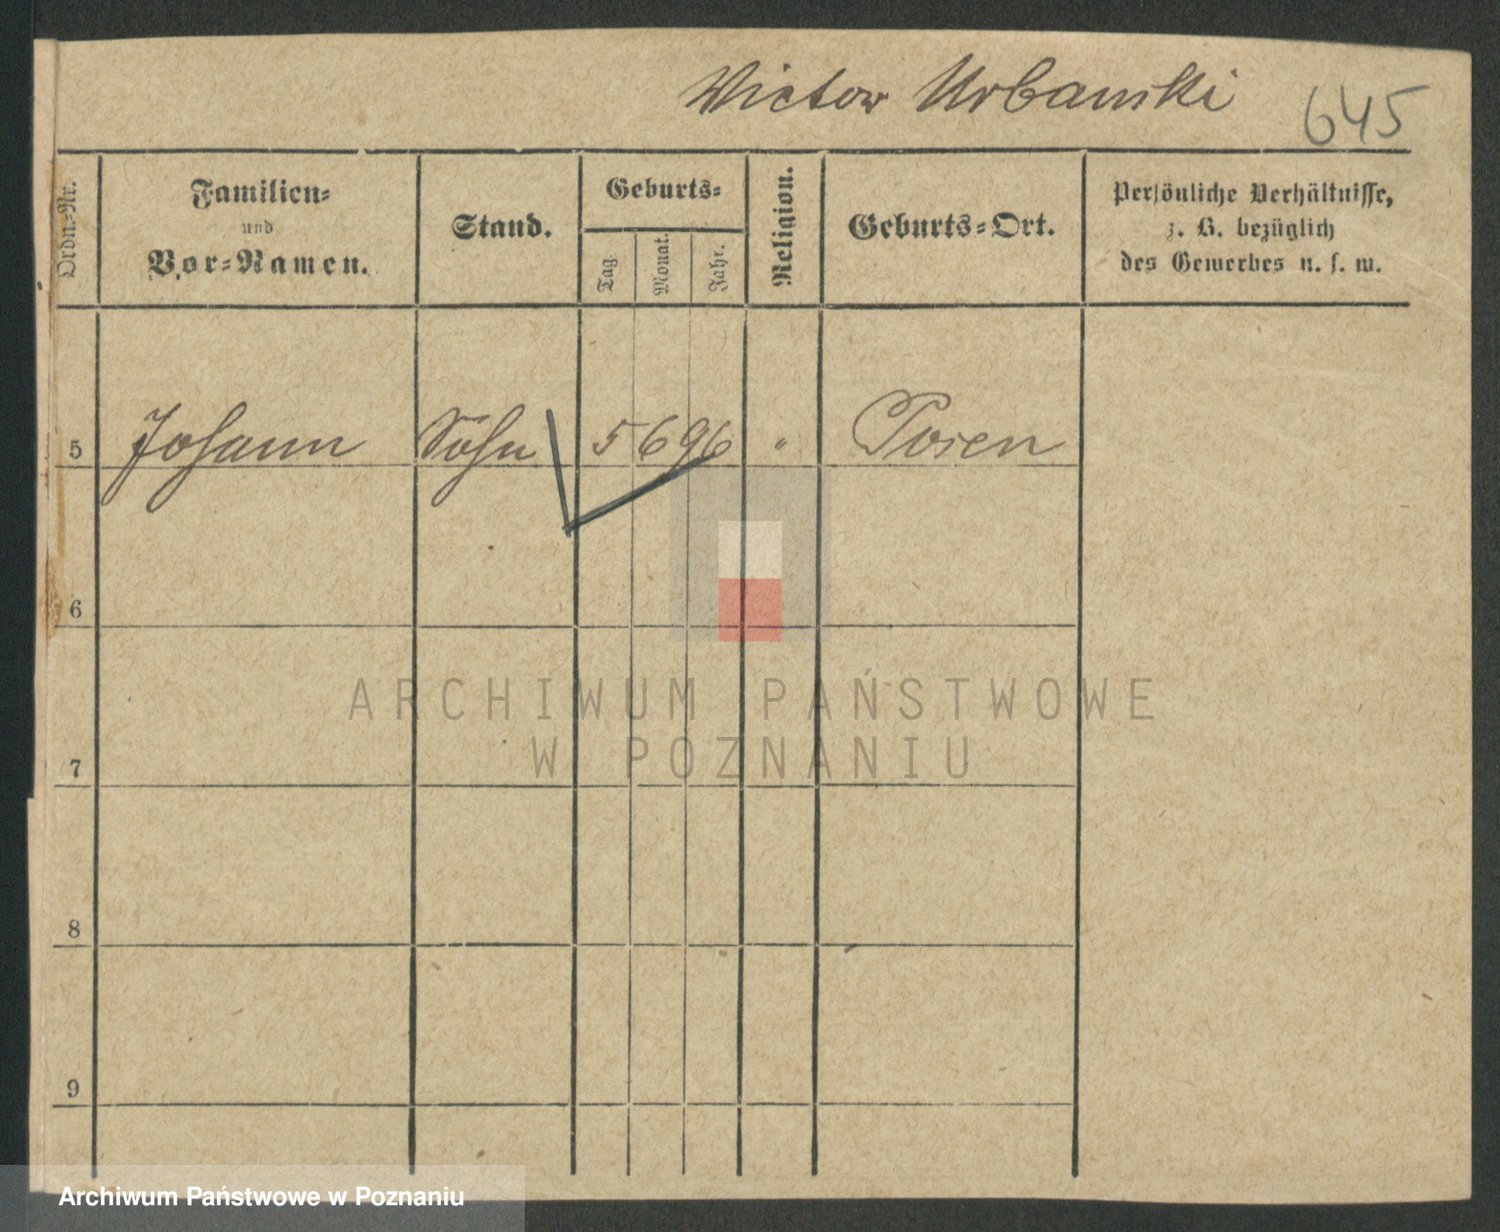 Victor Urbanski 645
Ordn.-Nr.
Familien-
und
Vor-Namen.
Stand.
Geburts-
Tag.
Monat.
Jahr.
Religion.
Geburts-Ort.
Persönliche Verhältnisse,
z. B. bezüglich
des Gewerbes u. s. w.
5 Johann Sohn 5 6 96 " Posen
6
ARCHIWUM PAŃSTWOWE
W POZNANIU
7
8
9
Archiwum Państwowe w Poznaniu